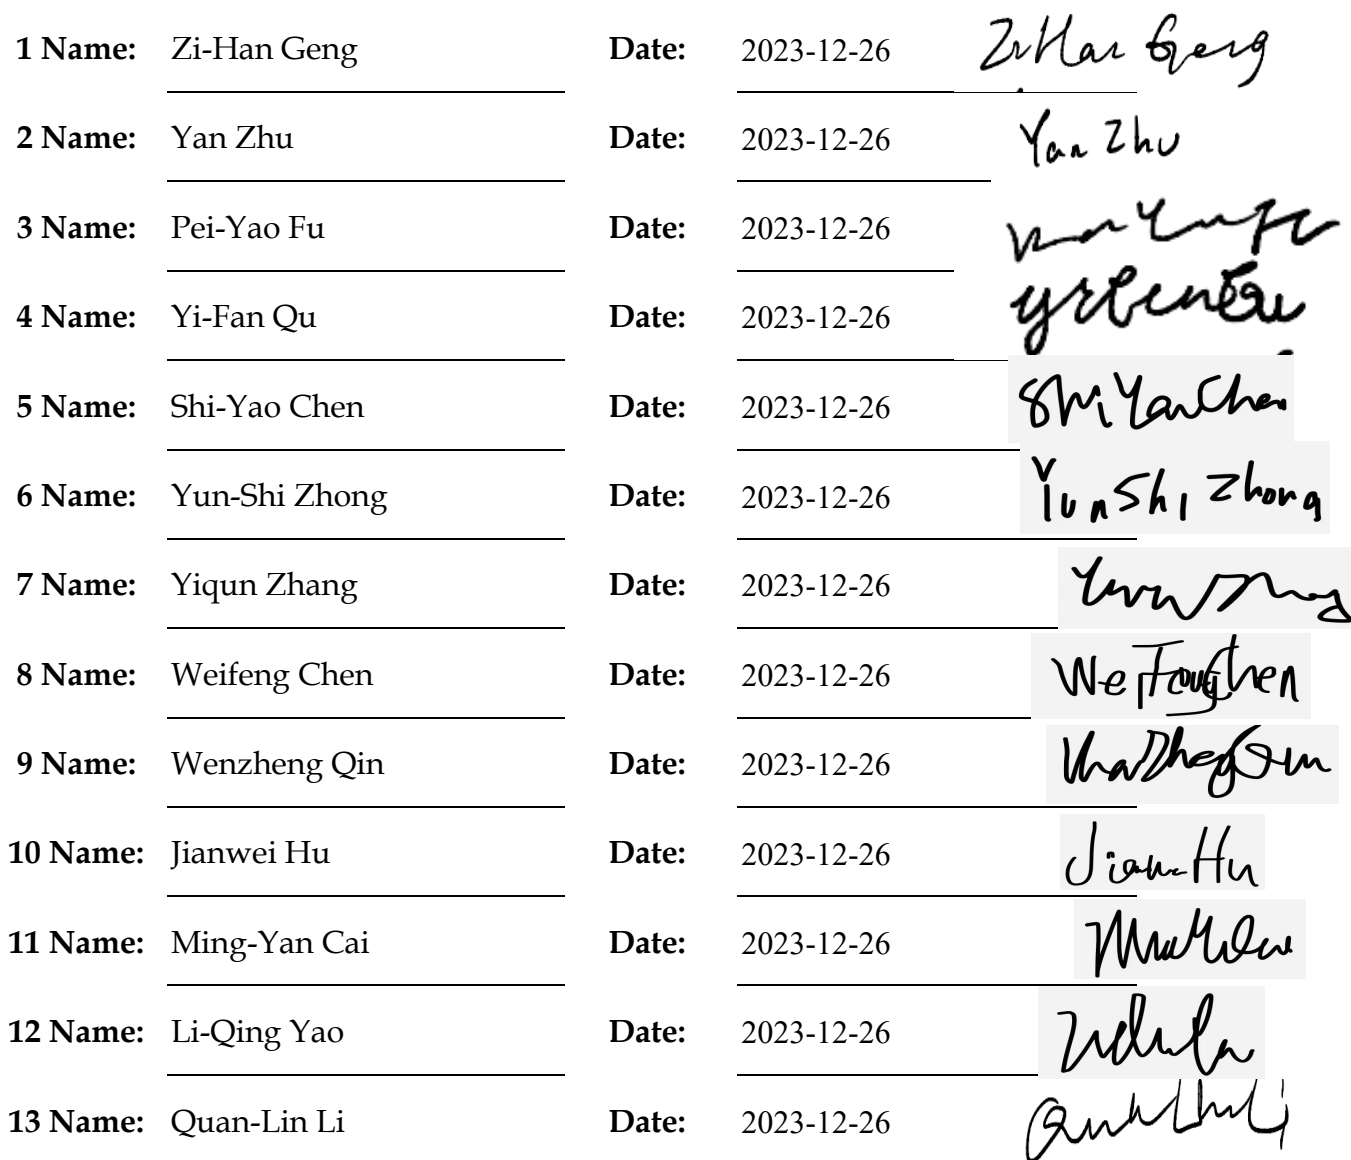 1 Name: Zi-Han Geng Date: 2023-12-26 ZiHan Geng
2 Name: Yan Zhu Date: 2023-12-26 Yan Zhu
3 Name: Pei-Yao Fu Date: 2023-12-26
4 Name: Yi-Fan Qu Date: 2023-12-26
5 Name: Shi-Yao Chen Date: 2023-12-26 ShiYaoChen
6 Name: Yun-Shi Zhong Date: 2023-12-26 YunShi Zhong
7 Name: Yiqun Zhang Date: 2023-12-26
8 Name: Weifeng Chen Date: 2023-12-26 WeiFengChen
9 Name: Wenzheng Qin Date: 2023-12-26
10 Name: Jianwei Hu Date: 2023-12-26
11 Name: Ming-Yan Cai Date: 2023-12-26
12 Name: Li-Qing Yao Date: 2023-12-26
13 Name: Quan-Lin Li Date: 2023-12-26